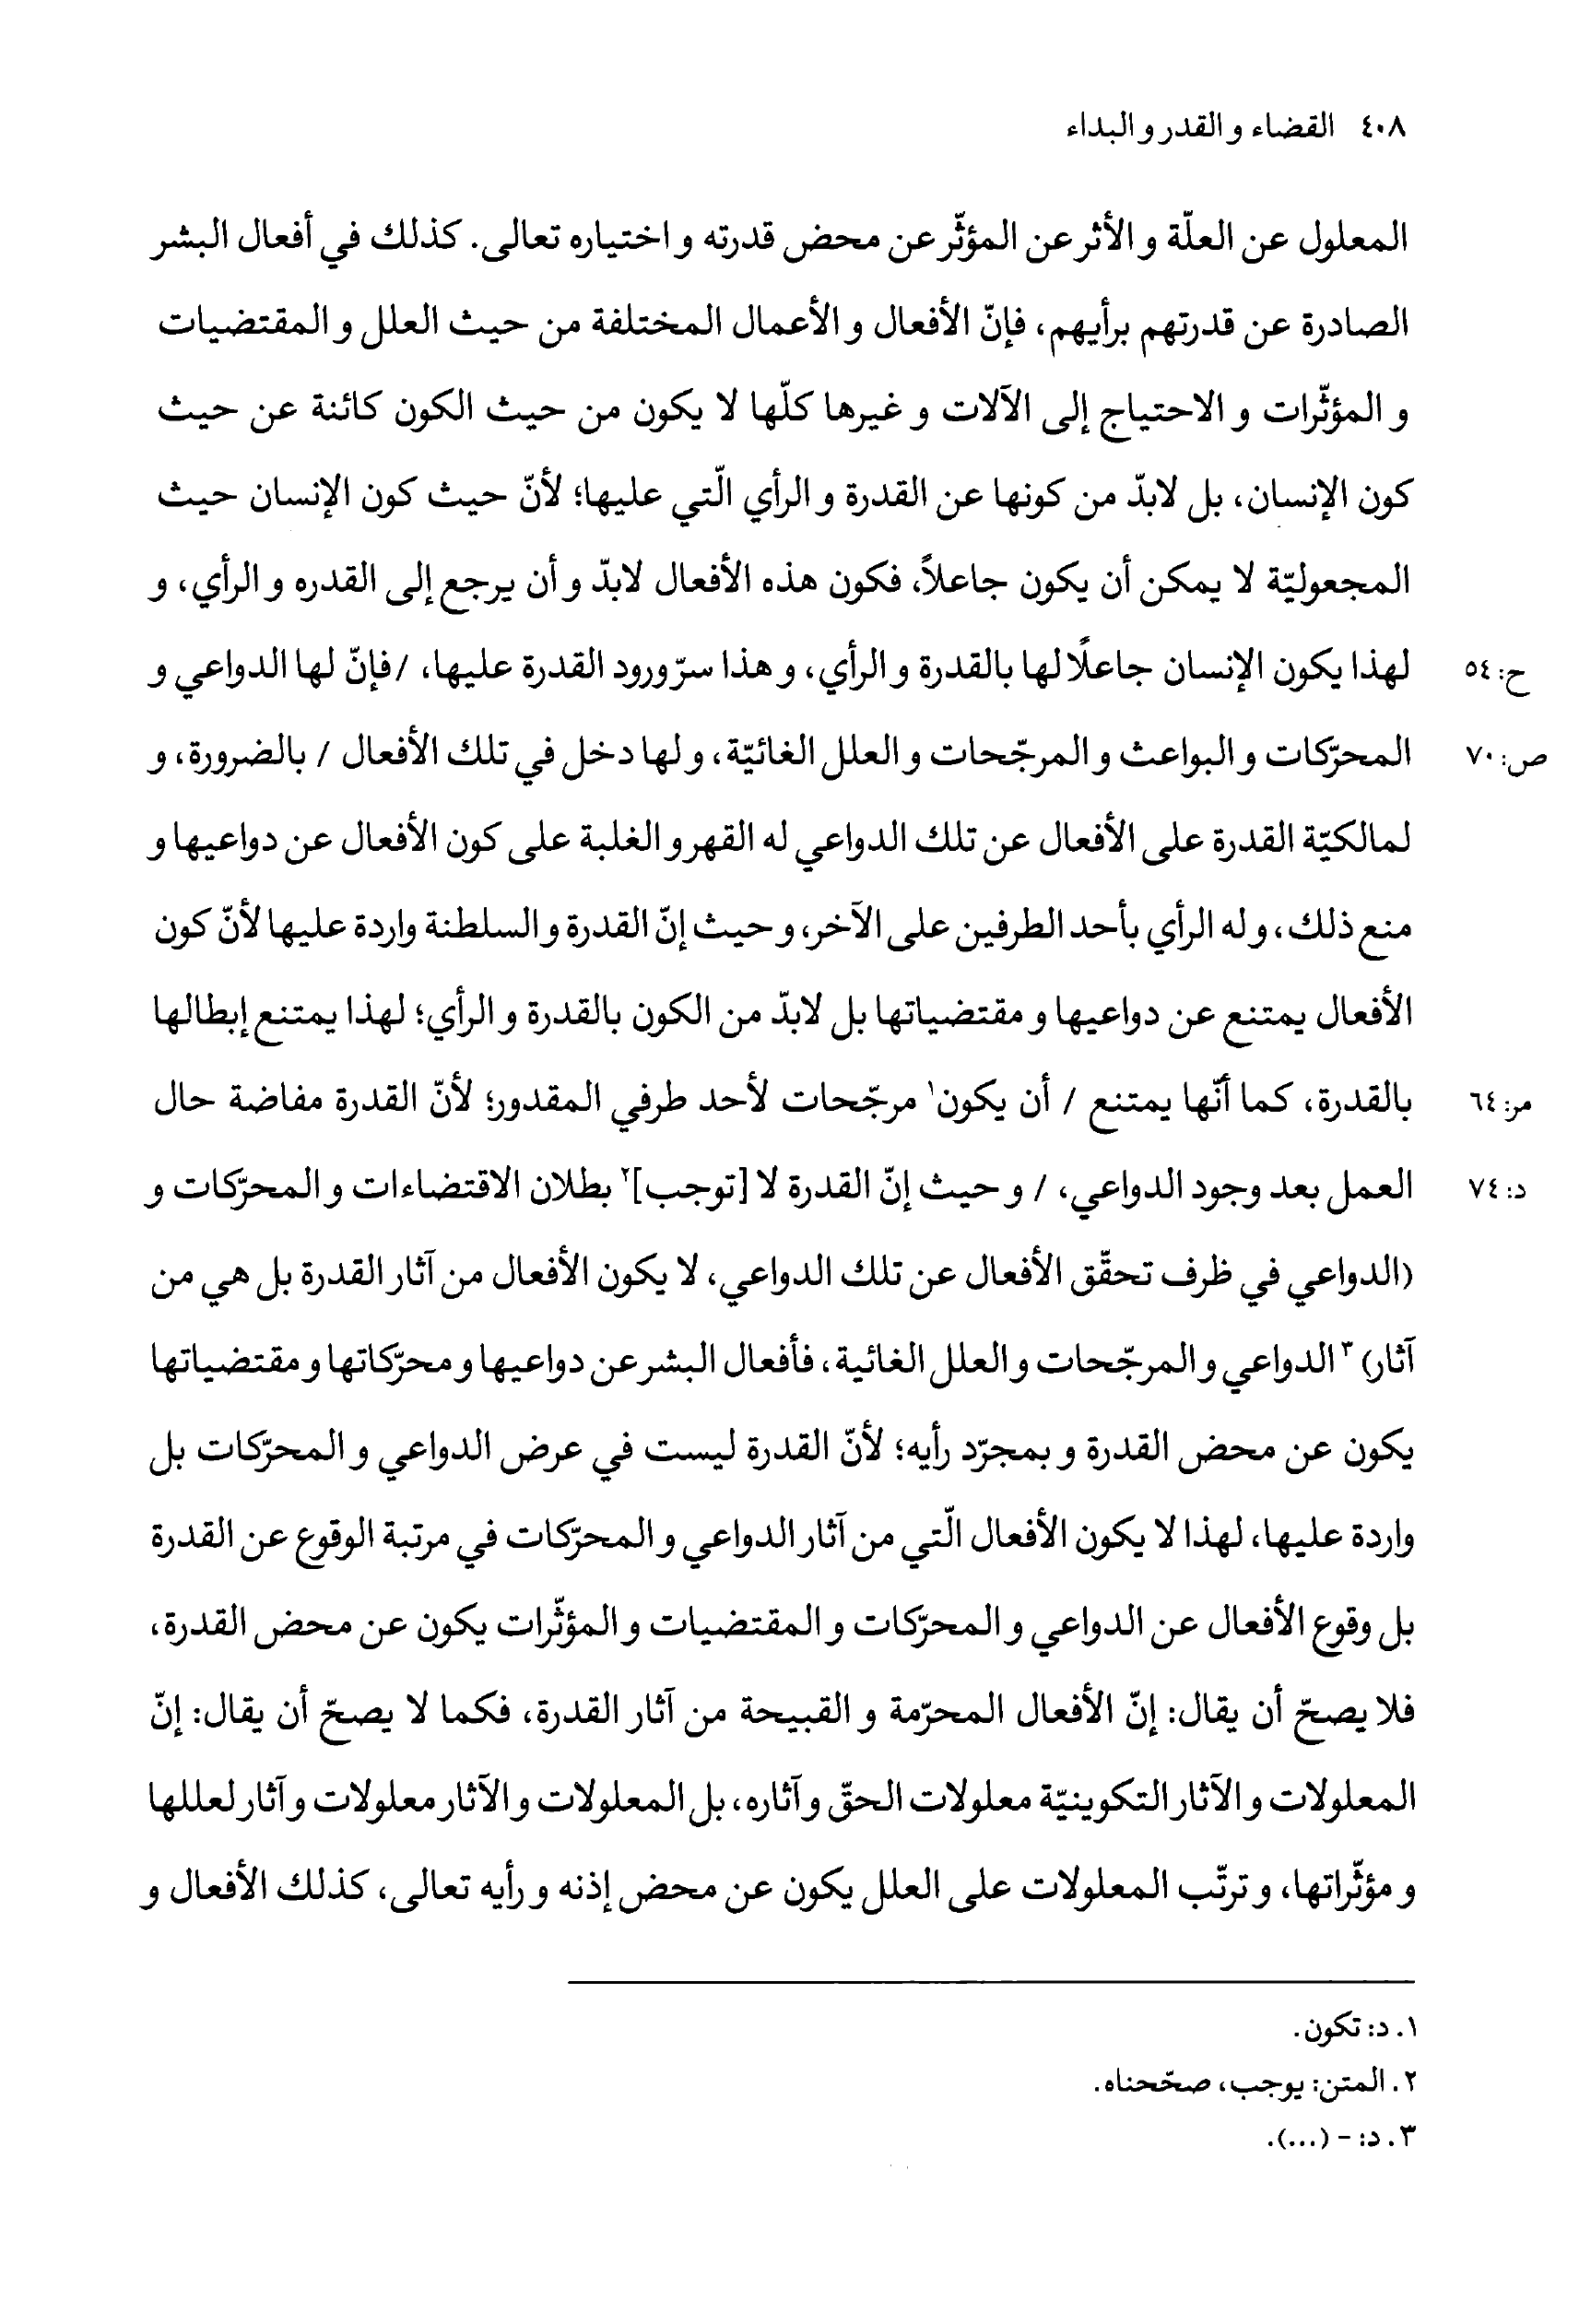 ٤٠٨ القضاء و القدر و البداء
المعلول عن العلّة و الأثر عن المؤثّر عن محض قدرته و اختياره تعالى. كذلك في أفعال البشر
الصادرة عن قدرتهم برأيهم، فإنّ الأفعال و الأعمال المختلفة من حيث العلل و المقتضيات
و المؤثّرات و الاحتياج إلى الآلات و غيرها كلّها لا يكون من حيث الكون كائنة عن حيث
كون الإنسان، بل لابدّ من كونها عن القدرة و الرأي الّتي عليها؛ لأنّ حيث كون الإنسان حيث
المجعوليّة لا يمكن أن يكون جاعلاً، فكون هذه الأفعال لابدّ و أن يرجع إلى القدره و الرأي، و
لهذا يكون الإنسان جاعلًا لها بالقدرة و الرأي، و هذا سرّ ورود القدرة عليها، / فإنّ لها الدواعي و ح: ٥٤
المحرّكات و البواعث و المرجّحات و العلل الغائيّة، و لها دخل في تلك الأفعال / بالضرورة، و ص: ٧٠
لمالكيّة القدرة على الأفعال عن تلك الدواعي له القهر و الغلبة على كون الأفعال عن دواعيها و
منع ذلك، و له الرأي بأحد الطرفين على الآخر، و حيث إنّ القدرة و السلطنة واردة عليها لأنّ كون
الأفعال يمتنع عن دواعيها و مقتضياتها بل لابدّ من الكون بالقدرة و الرأي؛ لهذا يمتنع إبطالها
بالقدرة، كما أنّها يمتنع / أن يكون١ مرجّحات لأحد طرفي المقدور؛ لأنّ القدرة مفاضة حال مر: ٦٤
العمل بعد وجود الدواعي، / و حيث إنّ القدرة لا [توجب]٢ بطلان الاقتضاءات و المحرّكات و د: ٧٤
(الدواعي في ظرف تحقّق الأفعال عن تلك الدواعي، لا يكون الأفعال من آثار القدرة بل هي من
آثار)٣ الدواعي و المرجّحات و العلل الغائية، فأفعال البشر عن دواعيها و محرّكاتها و مقتضياتها
يكون عن محض القدرة و بمجرّد رأيه؛ لأنّ القدرة ليست في عرض الدواعي و المحرّكات بل
واردة عليها، لهذا لا يكون الأفعال الّتي من آثار الدواعي و المحرّكات في مرتبة الوقوع عن القدرة
بل وقوع الأفعال عن الدواعي و المحرّكات و المقتضيات و المؤثّرات يكون عن محض القدرة،
فلا يصحّ أن يقال: إنّ الأفعال المحرّمة و القبيحة من آثار القدرة، فكما لا يصحّ أن يقال: إنّ
المعلولات و الآثار التكوينيّة معلولات الحقّ و آثاره، بل المعلولات و الآثار معلولات و آثار لعللها
و مؤثّراتها، و ترتّب المعلولات على العلل يكون عن محض إذنه و رأيه تعالى، كذلك الأفعال و
١. د: تكون.
٢. المتن: يوجب، صحّحناه.
٣. د: - (...).